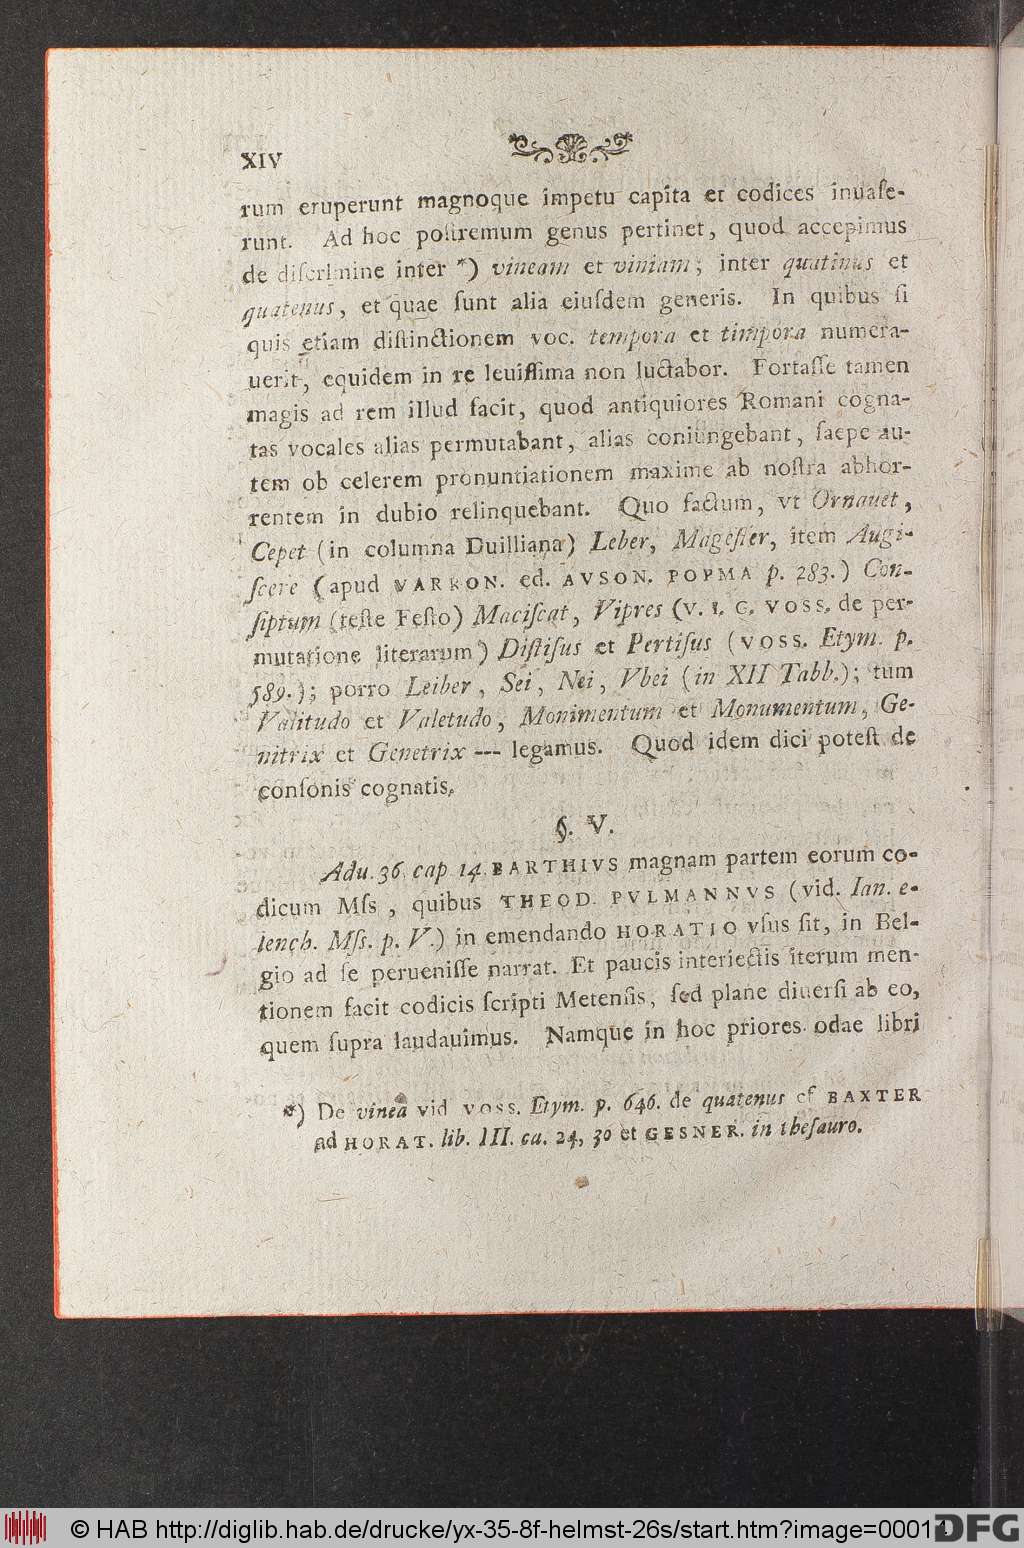 XIV
rum eruperunt magnoque impetu capita et codices inuaſe-
runt. Ad hoc poſtremum genus pertinet, quod accepimus
de diſcrimine inter *) vineam et viniam; inter quatinus et
quatenus, et quae ſunt alia eiuſdem generis. In quibus ſi
quis etiam diſtinctionem voc. tempora et timpora numera-
uerit, equidem in re leuiſſima non luctabor. Fortaſſe tamen
magis ad rem illud facit, quod antiquiores Romani cogna-
tas vocales alias permutabant, alias coniungebant, ſaepe au-
tem ob celerem pronuntiationem maxime ab noſtra abhor-
rentem in dubio relinquebant. Quo factum, vt Ornauet,
Cepet (in columna Duilliana) Leber, Mageſter, item Augi-
ſcere (apud VARRON. ed. AVSON. POPMA p. 283.) Con-
ſiptum (teſte Feſto) Maciſcat, Vipres (V. I. G. VOSS. de per-
mutatione literarum) Diſtiſus et Pertiſus (VOSS. Etym. p.
589.); porro Leiber, Sei, Nei, Vbei (in XII Tabb.); tum
Valitudo et Valetudo, Monimentum et Monumentum, Ge-
nitrix et Genetrix --- legamus. Quod idem dici poteſt de
conſonis cognatis.
§. V.
Adu. 36. cap 14. BARTHIVS magnam partem eorum co-
dicum Mſs, quibus THEOD. PVLMANNVS (vid. Ian. e-
lench. Mſs. p. V.) in emendando HORATIO vſus ſit, in Bel-
gio ad ſe perueniſſe narrat. Et paucis interiectis iterum men-
tionem facit codicis ſcripti Metenſis, ſed plane diuerſi ab eo,
quem ſupra laudauimus. Namque in hoc priores odae libri
*) De vinea vid VOSS. Etym. p. 646. de quatenus cf BAXTER
ad HORAT. lib. III. ca. 24, 30 et GESNER. in theſauro.
© HAB http://diglib.hab.de/drucke/yx-35-8f-helmst-26s/start.htm?image=00014
DFG